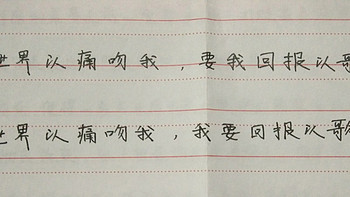 世界以痛吻我，要我回报以歌
世界以痛吻我，我要回报以歌